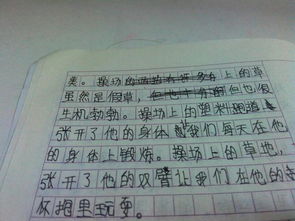 美。操场的上的草
虽然是假草，但也很
生机勃勃。操场上的塑料跑道
张开了他的身体 我们每天在他
的身体上锻炼。操场上的草地，
张开了他的双臂让我们在他的
怀抱里玩耍。